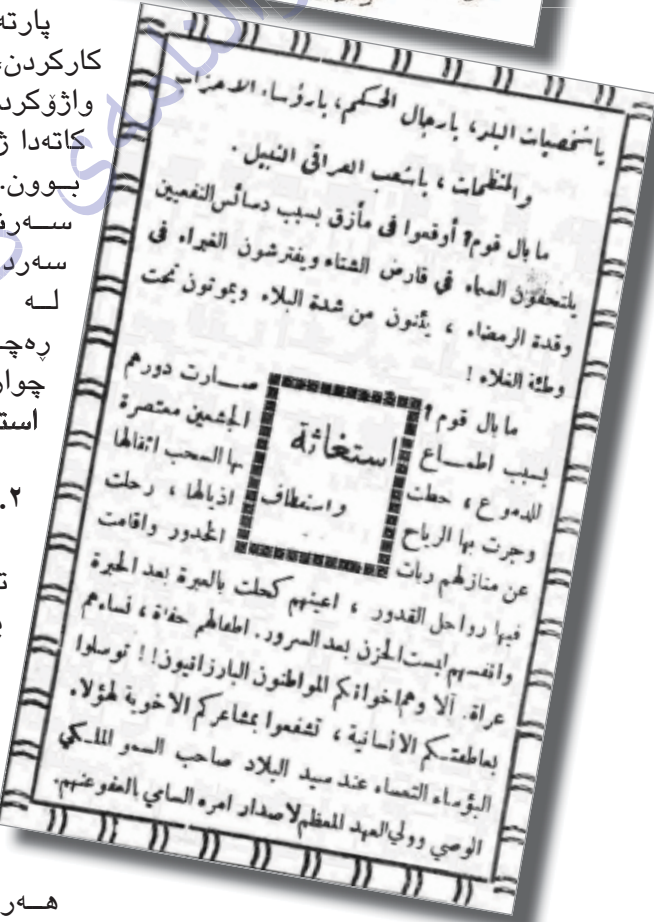 پارتە
کارکردن،
واژۆکرد
کاتەدا ژ
بــوون.
ســەرن
سەرد
لــە
ڕەچــ
چوار
است
٢.
ت
هــەر
ياشخصيات البلد، يارجال الحكم، يارؤساء الاحزاب
والمنظمات، ياشعب العراقي النبيل.
ما بال قوم؟ أوقعوا في مأزق بسبب دسائس النفعيين
يلتحفون السماء في قارض الشتاء ويفترشون الغبراء في
وقدة الرمضاء، يئنون من شدة البلاء ويموتون تحت
وطئة الغلاء!
ما بال قوم؟ صــارت دورهم
بسبب اطمــاع المجشعين معتصرة
للدموع، حطت بها السحب اثقالها
وجرت بها الرياح اذيالها، رحلت
عن منازلهم ربات الخدور واقامت
استغاثة
واستعطاف
فيها رواحل القدور، اعينهم كحلت بالعبرة بعد الحبرة
وانفسهم لبست الحزن بعد السرور. اطفالهم حفاة، نساءهم
عراة. ألا وهم اخوانكم المواطنون البارزانيون!! توسلوا
بعاطفتــكم الانسانية، تشفعوا بمشاعركم الاخوية لهؤلاء
البؤساء التعساء عند سيد البلاد صاحب السمو الملــكي
الوصي وولي العهد المعظم لاصدار امره السامي بالعفو عنهم.